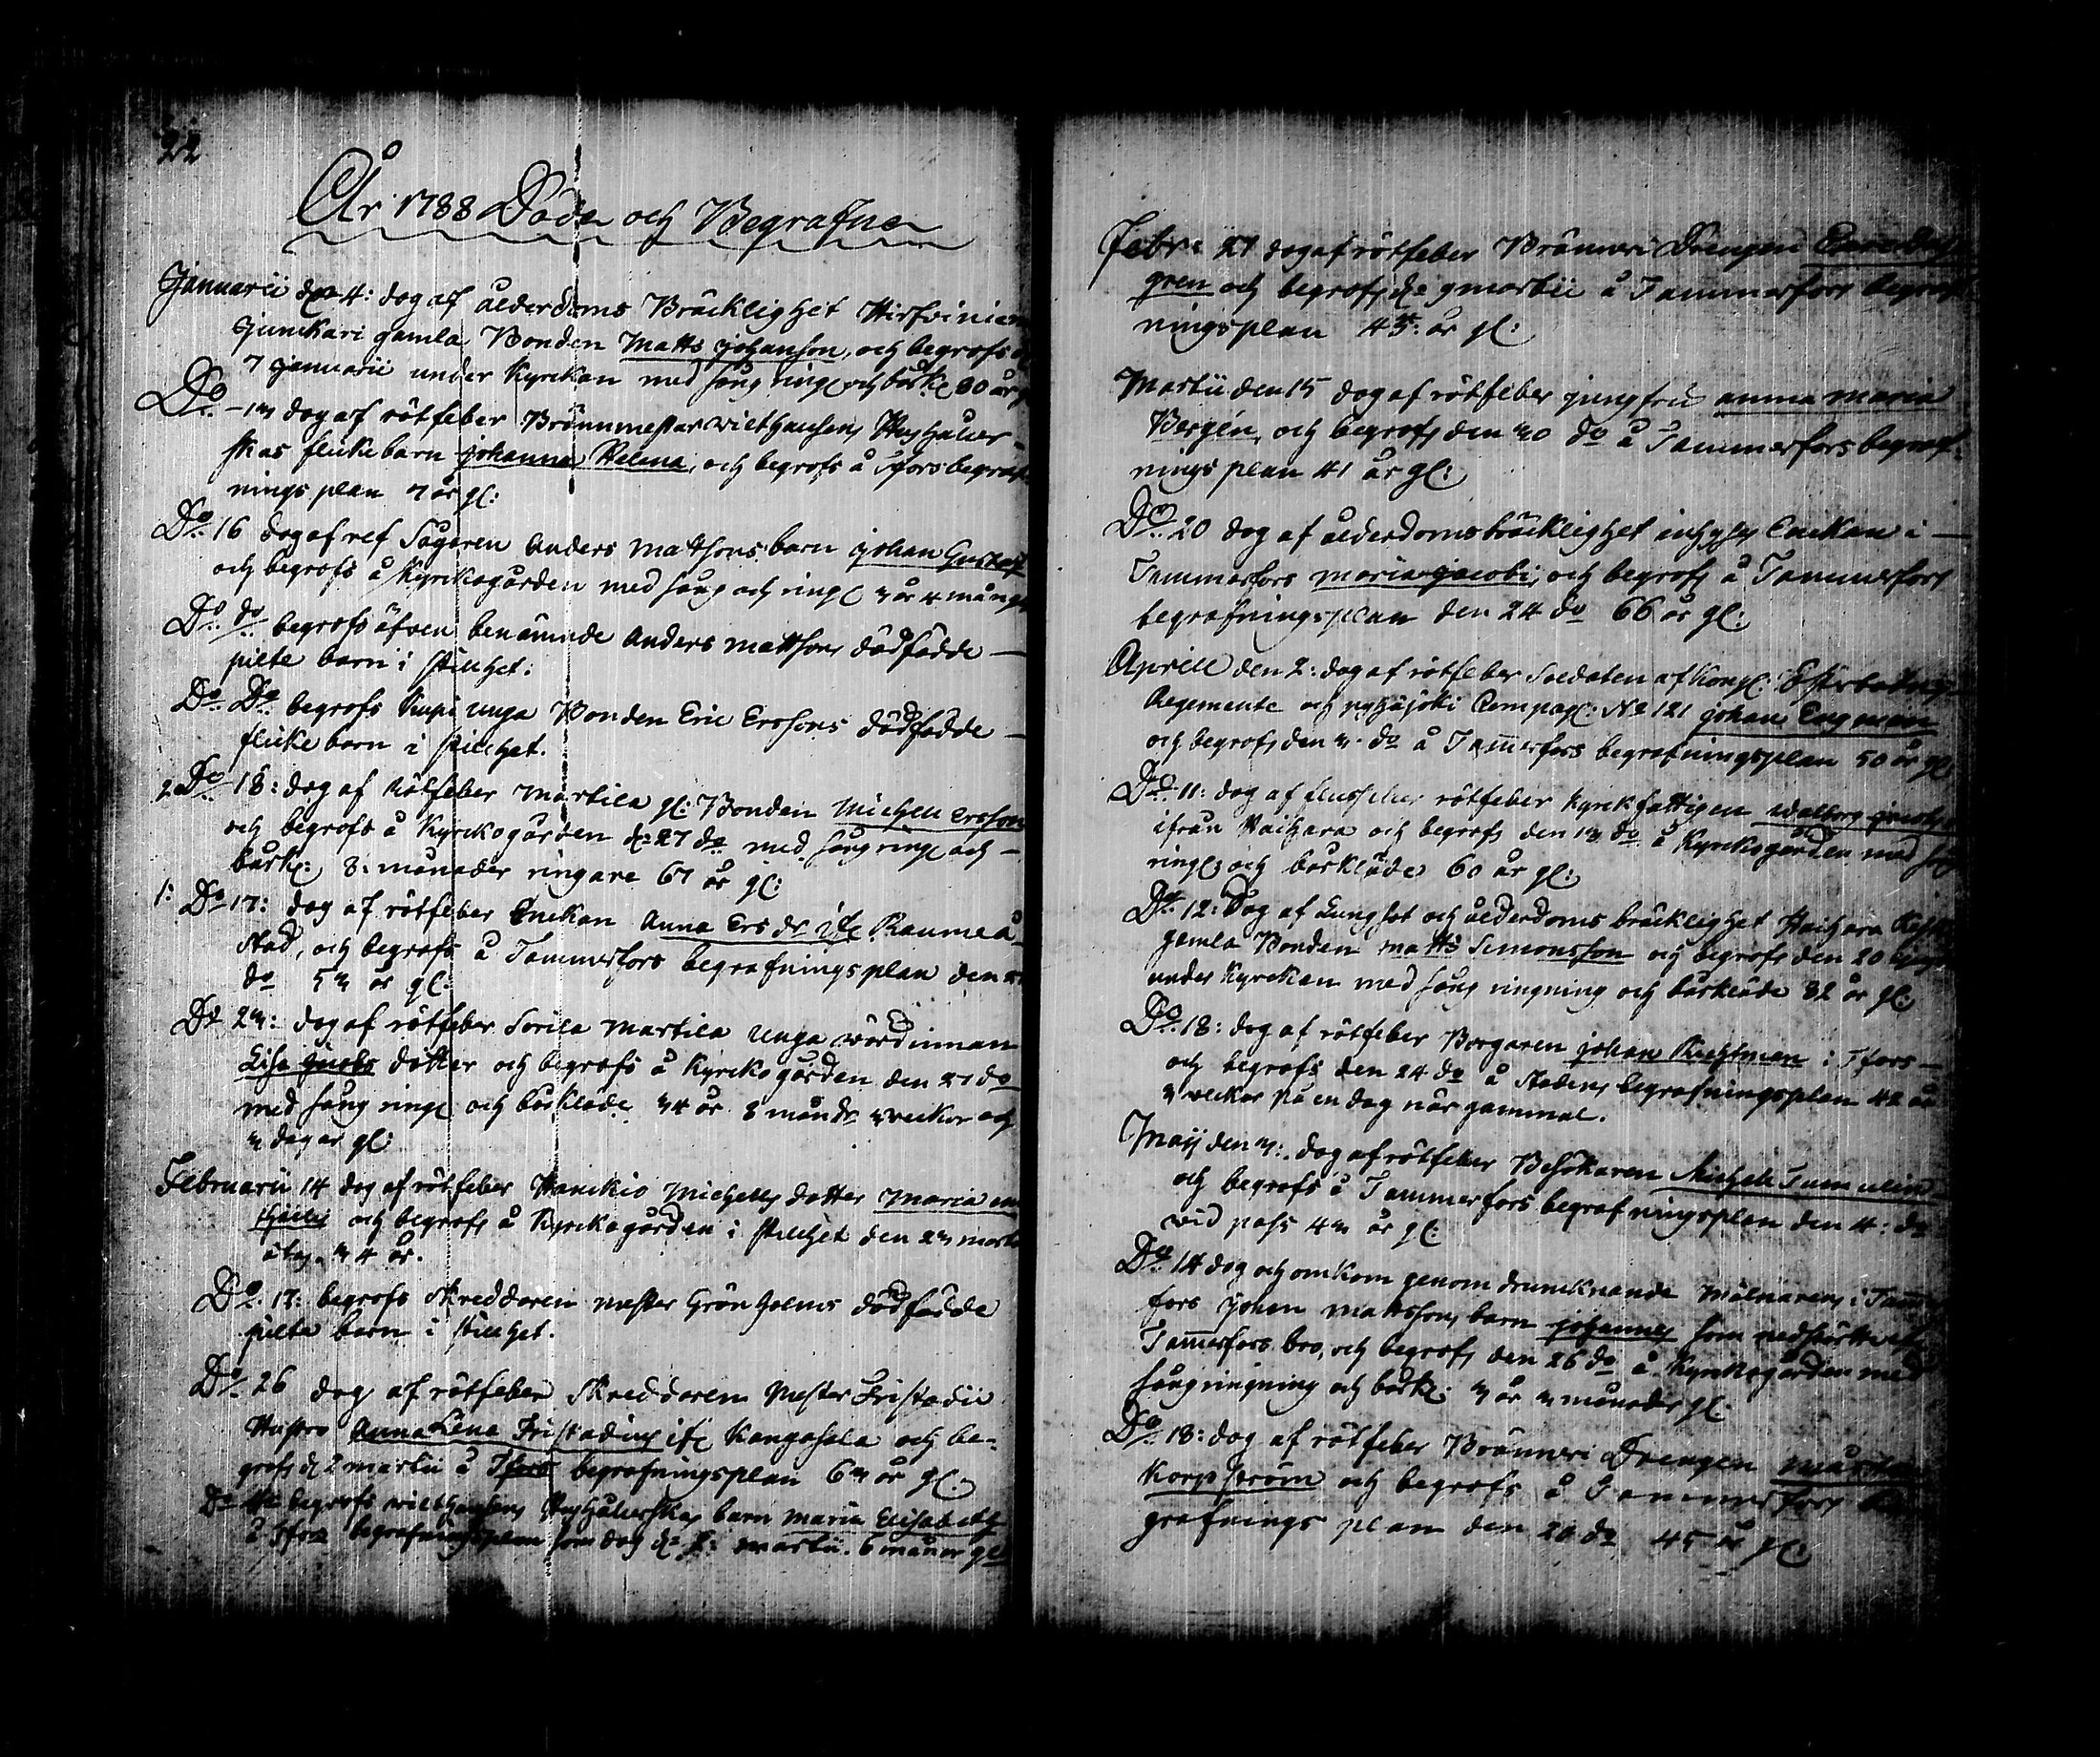 22
År 1788 Döde och Begrafne
Januarii d. 4: dog af ålderdoms Bräcklighet Hirfvinie
Junckari gamla Bonden Matts Johansson, och begrofs d.
7 Januarii under Kyrckan med sång ring. och bårkl. 80 år
Do dog af rötfeber Brännmestar Hushåller-
skas flicke barn Johanna Helena, och begrofs å Tfors begraf-
nings plan 7 år gl:
Do 16 dog af ref Sågaren Anders Mattsons barn Johan Gustaf
och begrofs å Kyrckogården med sång och ring. 3 år 4 mån
Do do begrofs äfven benämnde Anders Mattsons dödfödde
pilte barn i stillhet.
Do Do begrofs Kupi unga Bonden Eric Erssons dödfödde
flicke barn i stillhet.
2. Do 18: dog af Rötfeber Martila gl: Bonden Michell Ersson
och begrofs å Kyrckogården d. 27 do med sång ring och
bårkl: 8: månader ringare 67 år gl:
1: Do 17: dog af rötfeber Enckan Anna Ers dr ifr. Raumå
stad, och begrofs å Tammerfors begrafnings plan den
do 53 år gl.
Do 23: dog af rötfeber Sorila Martila unga wärdinnan
Lisa Jacobs dotter och begrofs å Kyrckogården den 27 do
med sång ring. och bårkläde 34 år 8 måndr 3 veckor och
3 dagar gl:
Februarii 14 dog af rötfeber Hanckio Michells dotter Maria
och begrofs å Kyrckogården i stillhet den 23 martii
34 år.
Do 17: begrofs Skreddaren mester Grönholms dödfödde
pilte barn i stillhet.
Do 26 dog af rötfeber Skreddaren Mester Fristadii
Hustro Anna Lena Fristadius ifr. Kangasala och be-
grofs d. 2 martii å Tfors begrafningsplan 63 år gl.
Do begrofs Hushållerskas barn Maria Elisabeth
å Tfors begrafningsplan som dog d. martii. 6 måner gl
Febr: 27 dog af rötfeber Bränneri Drengen
gren och begrofs d. 9 martii å Tammerfors begraf-
ningsplan 45: år gl:
Martii den 15 dog af rötfeber jungfru Anna Maria
Bergén, och begrofs den 30 do å Tammerfors begraf-
nings plan 41 år gl:
Do 20 dog af ålderdoms bräcklighet inhyses Enckan i
Tammerfors Maria Jacobi, och begrofs å Tammerfors
begrafningsplan den 24 do 66 år gl:
Aprill den 2: dog af rötfeber Soldaten af Kongl: Österbottns
Regemente och Pyhäjoki Compagl: No 121 Johan Engman
och begrofs den 3. do å Tamerfors begrafningsplan 50 år gl
Do 11: dog af rötfeber Kyrckfattigen Walborg
ifrån Haihara och begrofs den 13 do å Kyrckogården med sång
ring. och bårkläde 60 år gl:
Do 12: Dog af Lungsot och ålderdoms bräcklighet Haihara
gamla Bonden Matts Simonsson och begrofs den 20
under Kyrckan med sång ringning och bårkläde 82 år gl:
Do 18: dog af rötfeber Borgaren Johan i Tfors
och begrofs den 24 do å Stadens begrafningsplan 42 år
3 veckor på en dag när gammal.
Maji den 3: dog af rötfeber Besökaren Michell
och begrofs å Tammerfors begrafningsplan den 4: do
vid pass 43 år gl:
Do 14 dog och omkom genom drunknande Mölnarens i Tam
fors Johan Mattssons barn Johannes som nedstörtte af
Tamerfors bro, och begrofs den 26 do å Kyrckogården med
sång ringning och bårkl: 3 år 3 månader gl:
Do 18: dog af rötfeber Bränneri Drengen Mårten
Korpström och begrofs å Tammerfors be
grafnings plan den 20 do 45 år gl: